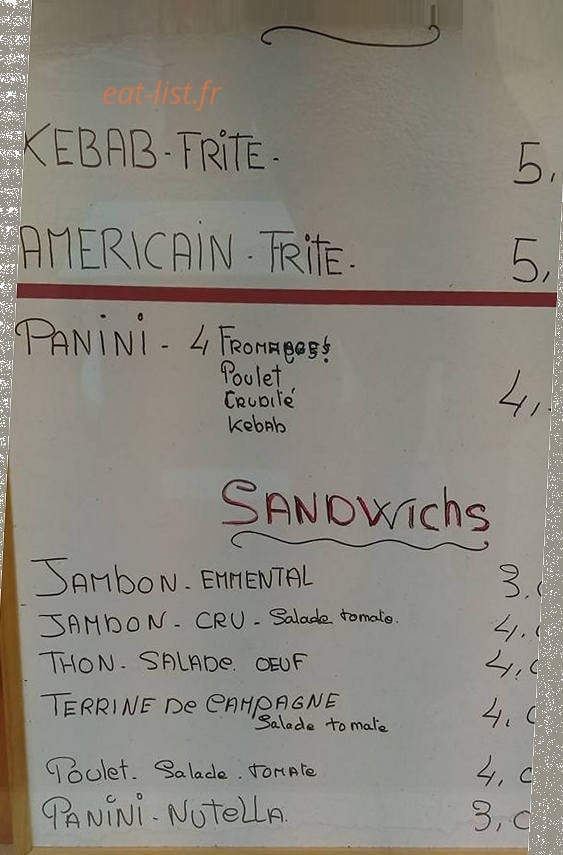 eat-list.fr
KEBAB - FRITE - 5,
AMERICAIN - FRITE - 5,
PANINI - 4 FROMAGES 4,
Poulet
CRUDITÉ
KEBAB
SANDWICHS
JAMBON - EMMENTAL 3.
JAMBON - CRU - Salade tomate. 4.
THON - SALADE. OEUF 4,
TERRINE DE CAMPAGNE 4.
Salade tomate
Poulet. Salade. TOMATE 4,
PANINI - NUTELLA. 3,